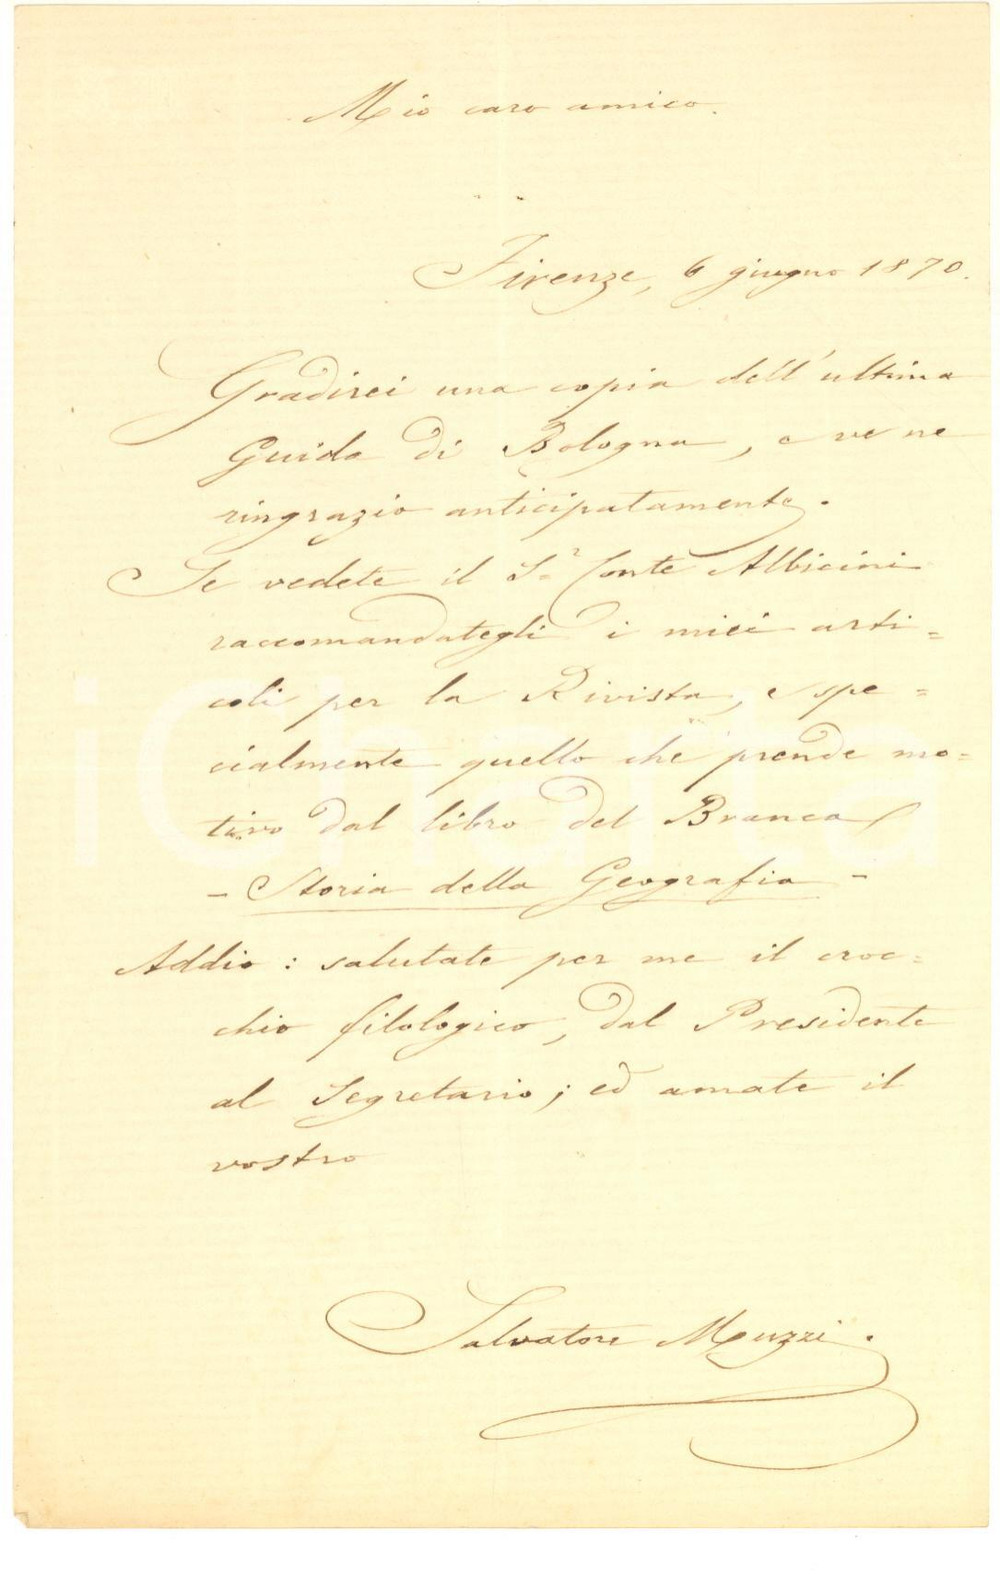 Mio caro amico.
Firenze, 6 giugno 1870.
Gradirei una copia dell'ultima
Guida di Bologna, e ve ne
ringrazio anticipatamente.
Se vedete il S.r Conte Albicini
raccomandategli i miei arti=
coli per la Rivista, e spe=
cialmente quello che prende mo=
tivo dal libro del Branca
- Storia della Geografia -
Addio: salutate per me il croc=
chio filologico, dal Presidente
al Segretario; ed amate il
vostro
Salvatore Muzzi.
iCharta